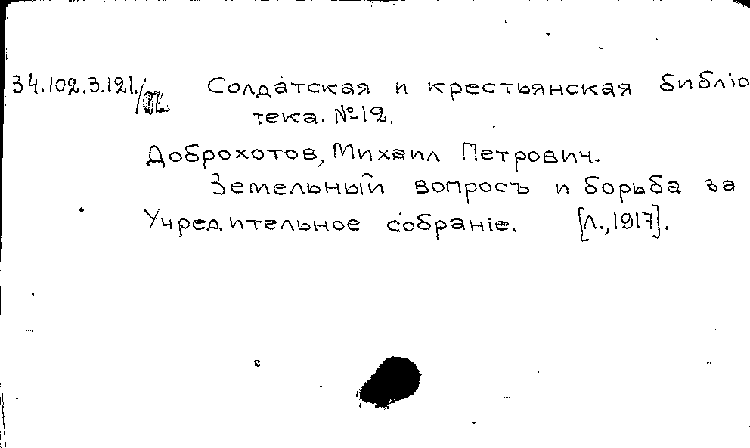 34.102.3.121./ Солдатская и крестьянская библіо
тека. №12.
Доброхотов, Михаил Петрович.
Земельный вопросъ и борьба за
Учредительное собраніе. [Л., 1917].